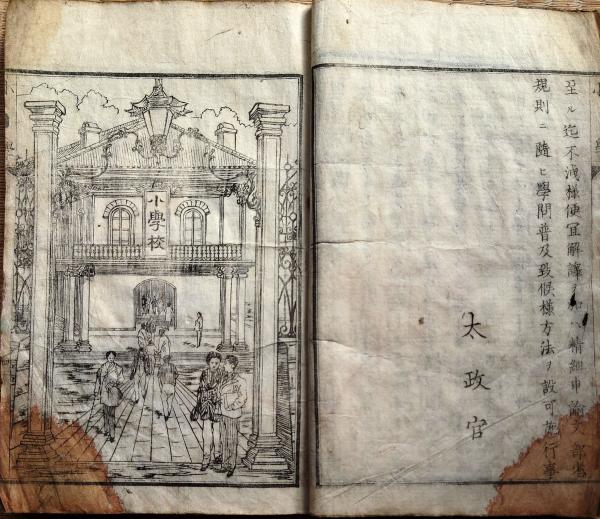 至ル迄不洩様便宜解譯ヲ加ヘ精細申諭文部省
規則ニ隨ヒ學問普及致候様方法ヲ設可施行事
太政官
小學校